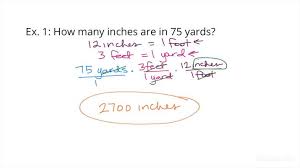 Ex. 1: How many inches are in 75 yards?
12 inches = 1 foot
3 feet = 1 yard
75 yards/1 · 3 feet/1 yard · 12 inches/1 foot
2700 inches